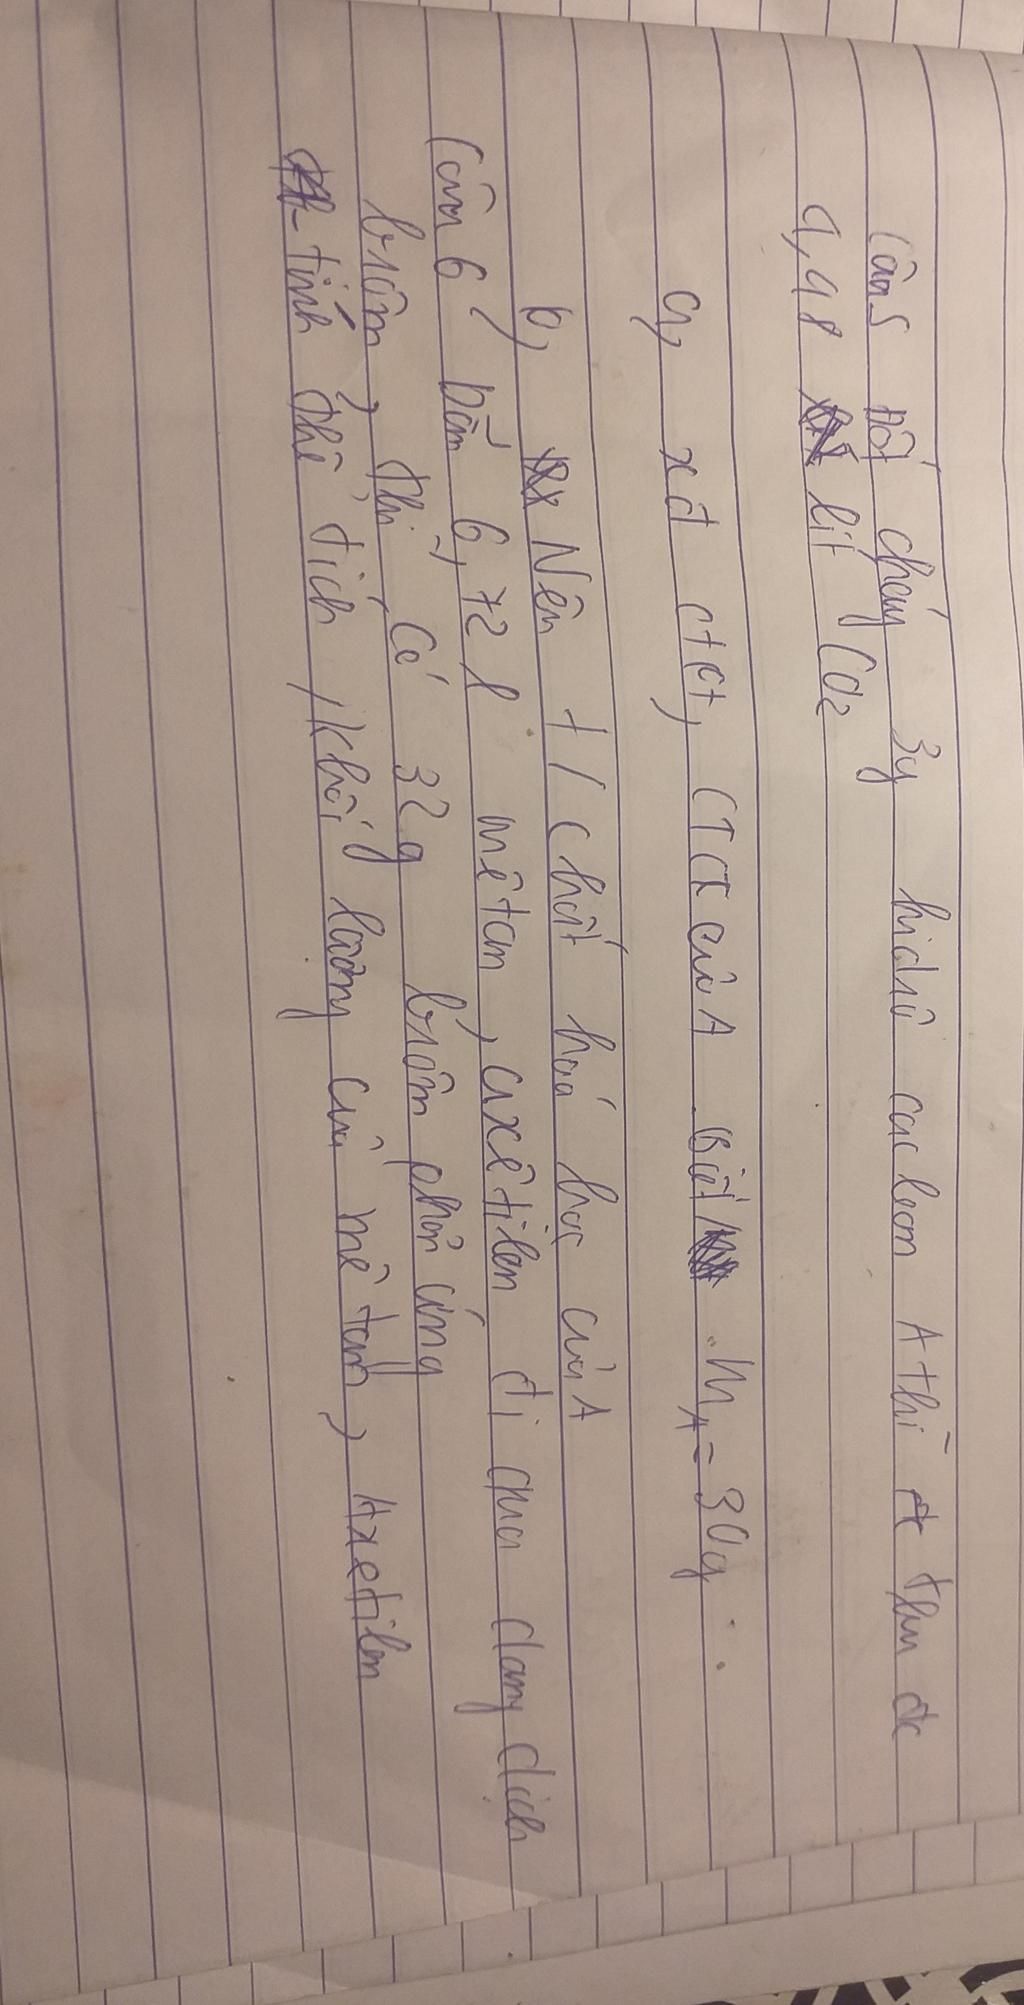 Câu 5 Đốt cháy 3g hidrô cacbon A thì thu đc
4,48 lít CO2
a, xđ ctct, CTCT của A Biết MA = 30g
b, Nêu t/c hoá học của A
Câu 6, Dẫn 6,72 l mêtan, axêtilen đi qua dung dịch
brôm, thì có 32g brôm phản ứng
tính thể tích, khối lượng của mê tan, Axetilen